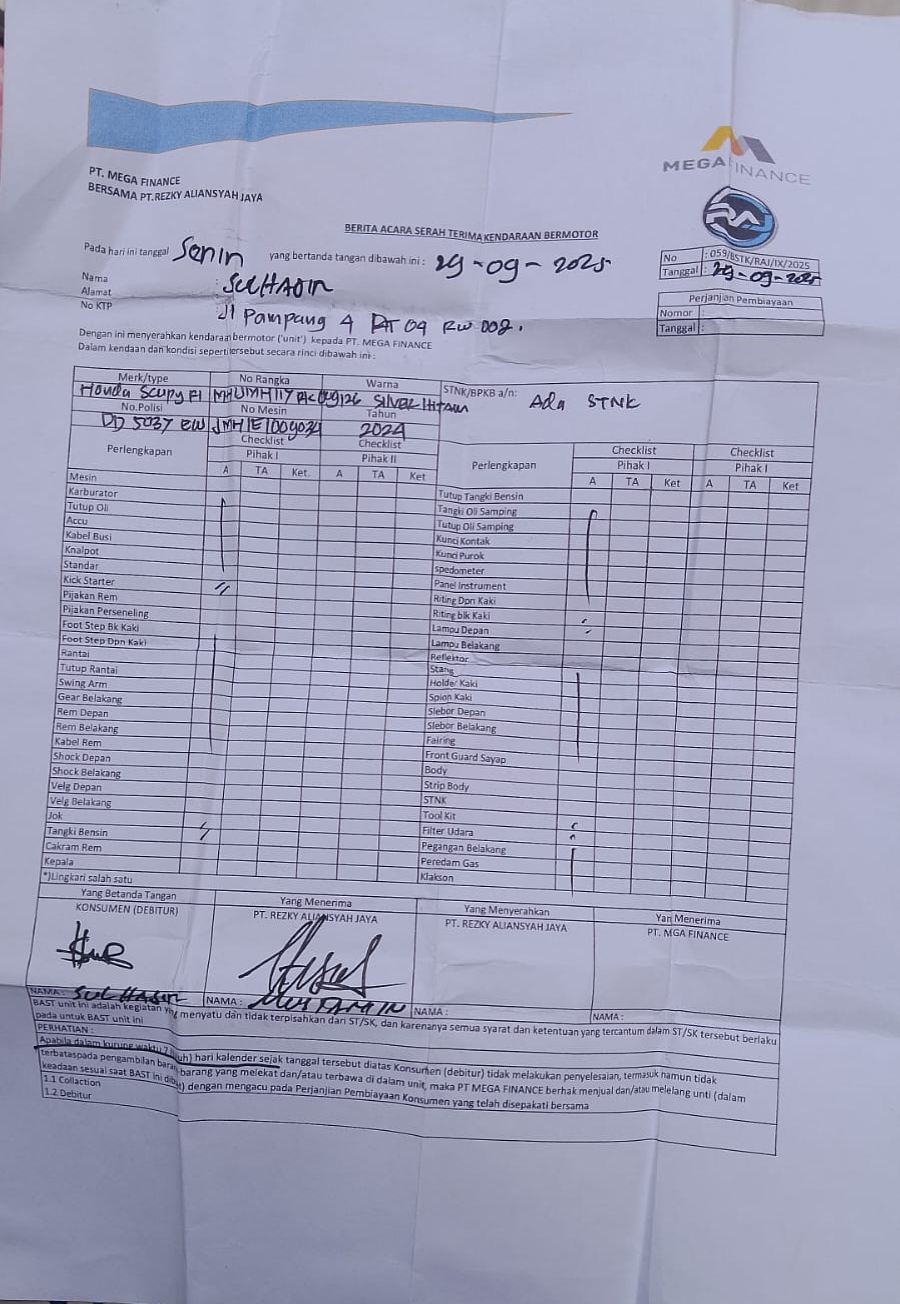 MEGA FINANCE
RAJ
PT. MEGA FINANCE
BERSAMA PT.REZKY ALIANSYAH JAYA
BERITA ACARA SERAH TERIMA KENDARAAN BERMOTOR
No : 059/BSTK/RAJ/IX/2025
Tanggal : 29-09-2025
Pada hari ini tanggal Senin yang bertanda tangan dibawah ini : 29-09-2025
Perjanjian Pembiayaan
Nomor :
Tanggal :
Nama : SULHADIN
Alamat
No KTP Jl Pampang 4 RT 09 RW 002.
Dengan ini menyerahkan kendaraan bermotor ('unit') kepada PT. MEGA FINANCE
Dalam kendaan dan kondisi seperti tersebut secara rinci dibawah ini :
Merk/type No Rangka Warna STNK/BPKB a/n: Ada STNK
Honda Scupy FI Silver Hitam
No.Polisi No Mesin Tahun
DD 5037 EW 2024
Perlengkapan Checklist Checklist Perlengkapan Checklist Checklist
Pihak I Pihak II Pihak I Pihak I
A TA Ket. A TA Ket A TA Ket A TA Ket
Mesin Tutup Tangki Bensin
Karburator Tangki Oli Samping
Tutup Oli Tutup Oli Samping
Accu Kunci Kontak
Kabel Busi Kunci Purok
Knalpot spedometer
Standar Panel Instrument
Kick Starter Riting Dpn Kaki
Pijakan Rem Riting blk Kaki
Pijakan Perseneling Lampu Depan
Foot Step Bk Kaki Lampu Belakang
Foot Step Dpn Kaki Reflektor
Rantai Stang
Tutup Rantai Holder Kaki
Swing Arm Spion Kaki
Gear Belakang Slebor Depan
Rem Depan Slebor Belakang
Rem Belakang Fairing
Kabel Rem Front Guard Sayap
Shock Depan Body
Shock Belakang Strip Body
Velg Depan STNK
Velg Belakang Tool Kit
Jok Filter Udara
Tangki Bensin Pegangan Belakang
Cakram Rem Peredam Gas
Kepala Klakson
*)Lingkari salah satu
Yang Betanda Tangan Yang Menerima Yang Menyerahkan Yan Menerima
KONSUMEN (DEBITUR) PT. REZKY ALIANSYAH JAYA PT. REZKY ALIANSYAH JAYA PT. MGA FINANCE
NAMA : SULHADIN NAMA : NAMA : NAMA :
BAST unit ini adalah kegiatan yng menyatu dan tidak terpisahkan dari ST/SK, dan karenanya semua syarat dan ketentuan yang tercantum dalam ST/SK tersebut berlaku
pada untuk BAST unit ini
PERHATIAN :
Apabila dalam kurung waktu 7 hari kalender sejak tanggal tersebut diatas Konsumen (debitur) tidak melakukan penyelesaian, termasuk namun tidak
terbataspada pengambilan barang yang melekat dan/atau terbawa di dalam unit, maka PT MEGA FINANCE berhak menjual dan/atau melelang unti (dalam
keadaan sesuai saat BAST ini dengan mengacu pada Perjanjian Pembiayaan Konsumen yang telah disepakati bersama
1.1 Collaction
1.2 Debitur